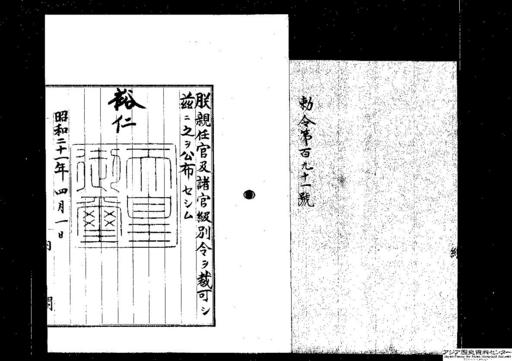 朕親任官及諸官級別令ヲ裁可シ
茲ニ之ヲ公布セシム
裕仁
天皇
御璽
昭和二十一年四月一日
勅令第百九十一號
アジア歴史資料センター